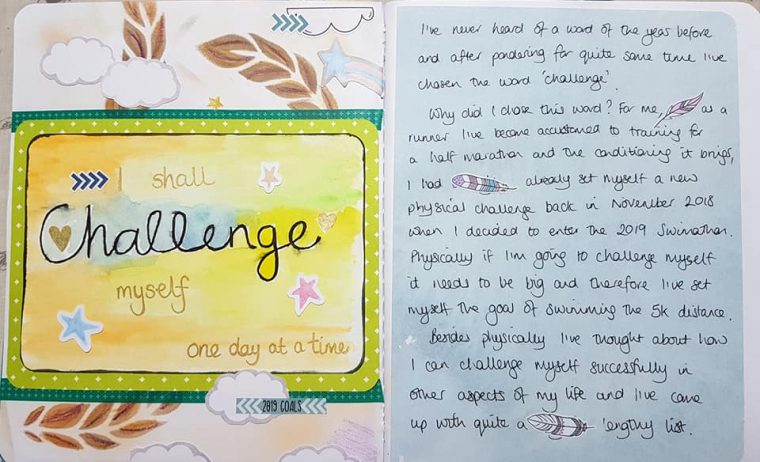 I shall
Challenge
myself
one day at a time
2019 GOALS
I've never heard of a word of the year before
and after pondering for quite some time I've
chosen the word 'challenge'.
Why did I chose this word? For me, as a
runner I've become accustomed to training for
a half marathon and the conditioning it brings,
I had already set myself a new
physical challenge back in November 2018
when I decided to enter the 2019 Swimathon.
Physically if I'm going to challenge myself
it needs to be big and therefore I've set
myself the goal of swimming the 5k distance.
Besides physically I've thought about how
I can challenge myself successfully in
other aspects of my life and I've come
up with quite a lengthy list.